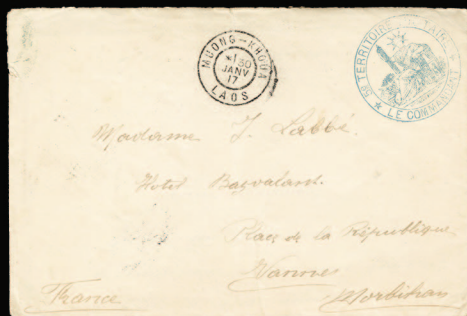 MUONG-KHOUA
*1 30
JANV
17
LAOS
5e TERRITOIRE MILITAIRE
* LE COMMANDANT *
Madame J. Labbé.
Hotel
Place de la République
Vannes
France
Morbihan